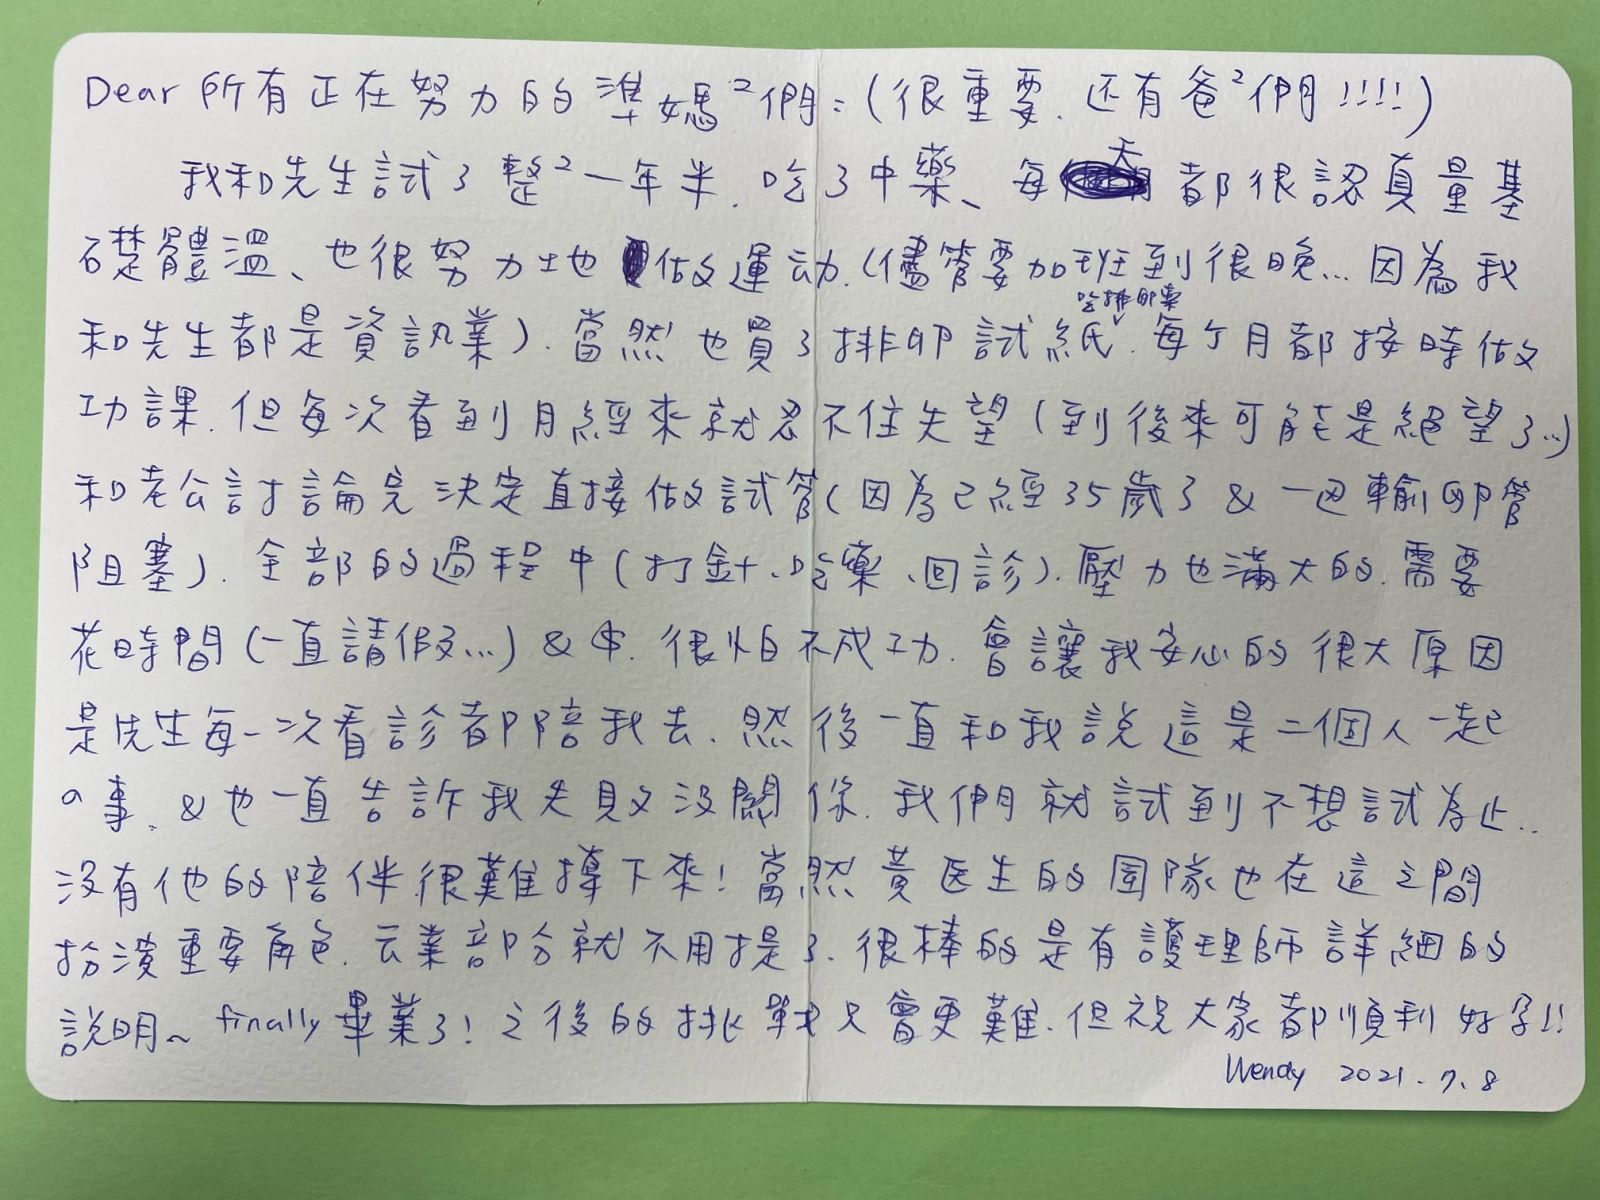 Dear 所有正在努力的準媽²們:(很重要.还有爸²們!!!!)
我和先生試了整²一年半.吃了中藥、每天都很認真量基
礎體溫、也很努力地做運动.(儘管要加班到很晚...因為我
和先生都是資訊業).當然也買了排卵試紙.吃排卵藥 每个月都按時做
功課.但每次看到月經來就忍不住失望(到後來可能是絕望了...)
和老公討論完決定直接做試管(因為已經35歲了 & 一边輸卵管
阻塞).全部的過程中(打針、吃藥、回診).壓力也滿大的.需要
花時間(一直請假...)&$.很怕不成功.會讓我安心的很大原因
是先生每一次看診都陪我去.然後一直和我說這是二個人一起
の事.&也一直告訴我失敗没關係.我們就試到不想試為止..
没有他的陪伴很難撐下來!當然黃医生的团隊也在這之間
扮演重要角色.专業部分就不用提了.很棒的是有護理師詳細的
說明~ finally 畢業了!之後的挑戰只會更難.但祝大家都順利好孕!!
Wendy 2021.7.8